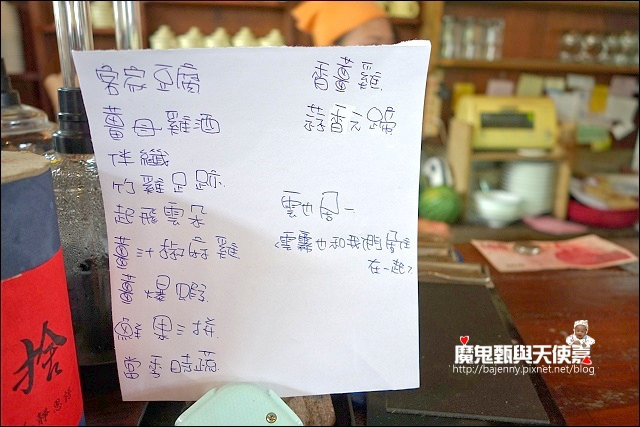 客家豆腐
薑母雞酒
伴纖
竹雞足跡
起飛雲朵
鮮果三拼
當季時蔬
香薑麵
蒜香元蹄
雲也居一
<雲霧也和我們居住
在一起>
捨
靜思語
魔鬼甄與天使嘉
http://bajenny.pixnet.net/blog